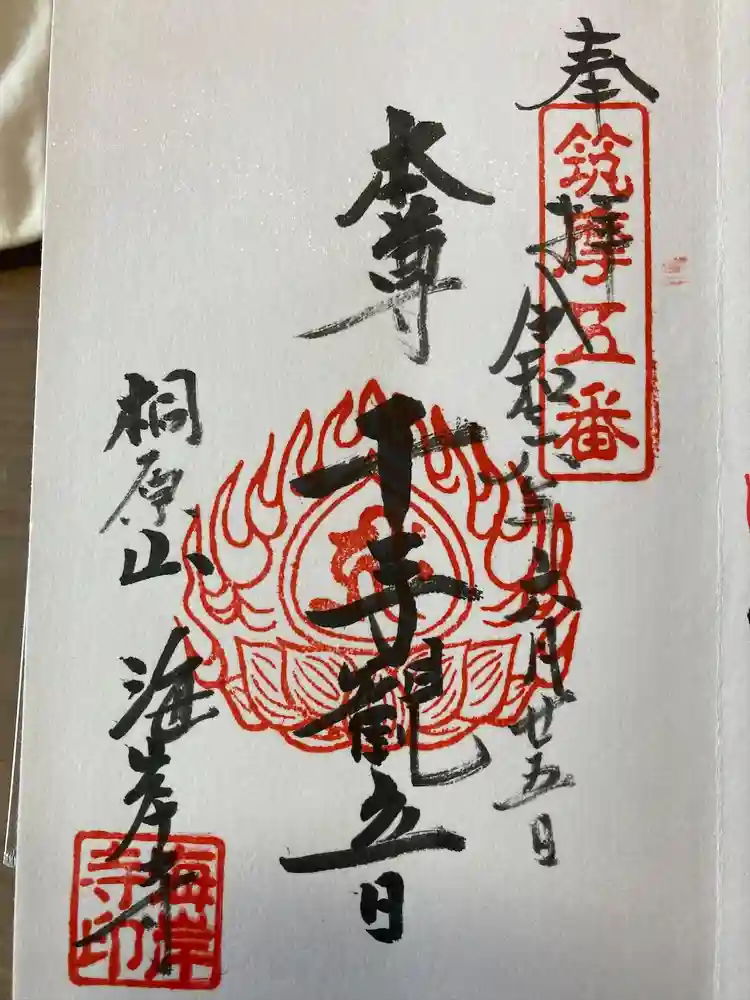 奉拝
筑摩五番
令和二年六月廿五日
本尊
千手観立日
桐原山
海岸寺
海岸寺印